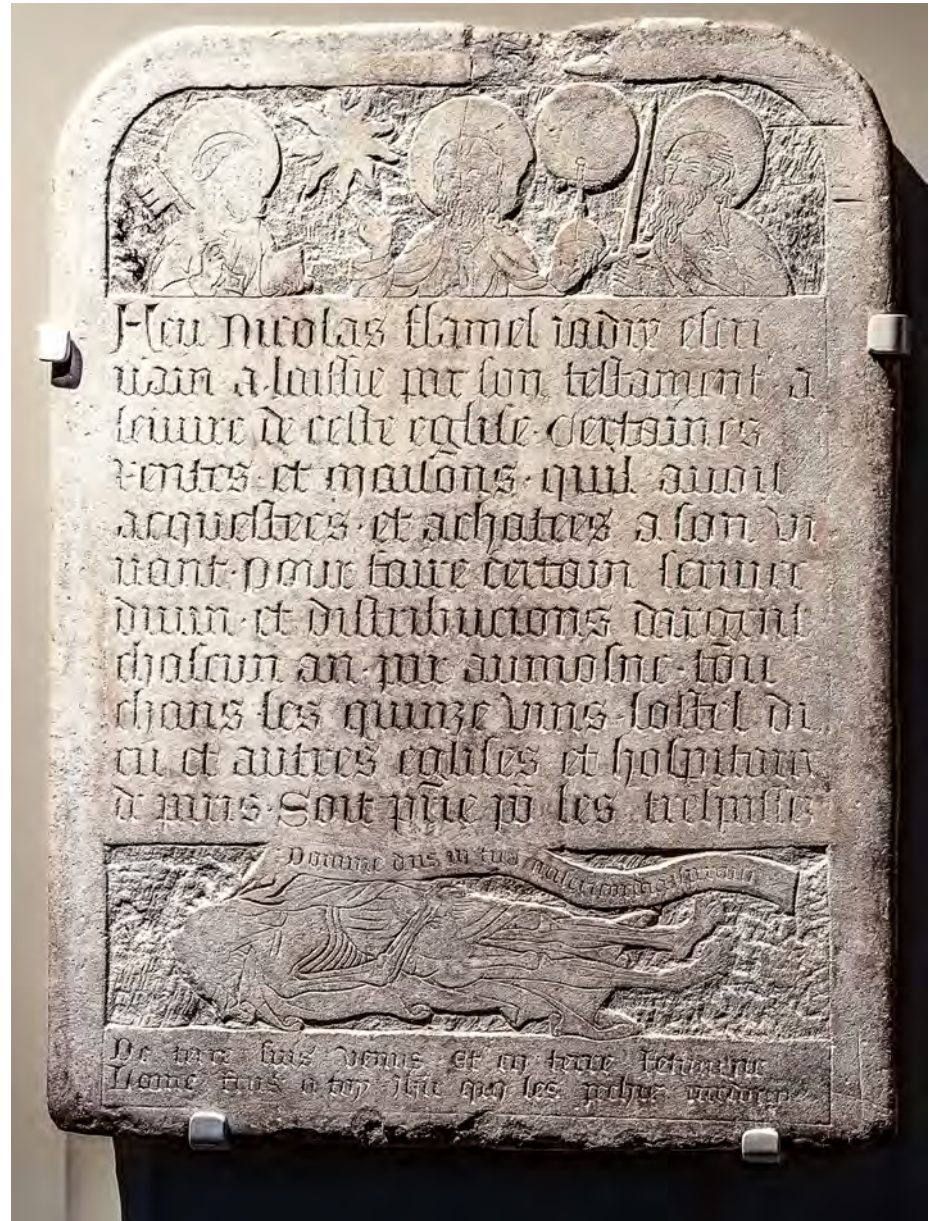 Feu nicolas flamel iadiz escri
uain a laissie par son testament a
leuure de ceste eglise · certaines
rentes · et maisons · quil auoit
acquestees · et achatees a son vi
uant · pour faire certain seruice
diuin · et distribucions dargent
chascun an · par aumosne · tou
chans les quinze vins · lostel di
eu et autres eglises et hospitaux
de paris · Soit prie por les trespassez
Domine deus in tua misericordia speraui
De terre suis venus et en terre retourne
Lame rens a toy ihu qui les pechiez pardonne